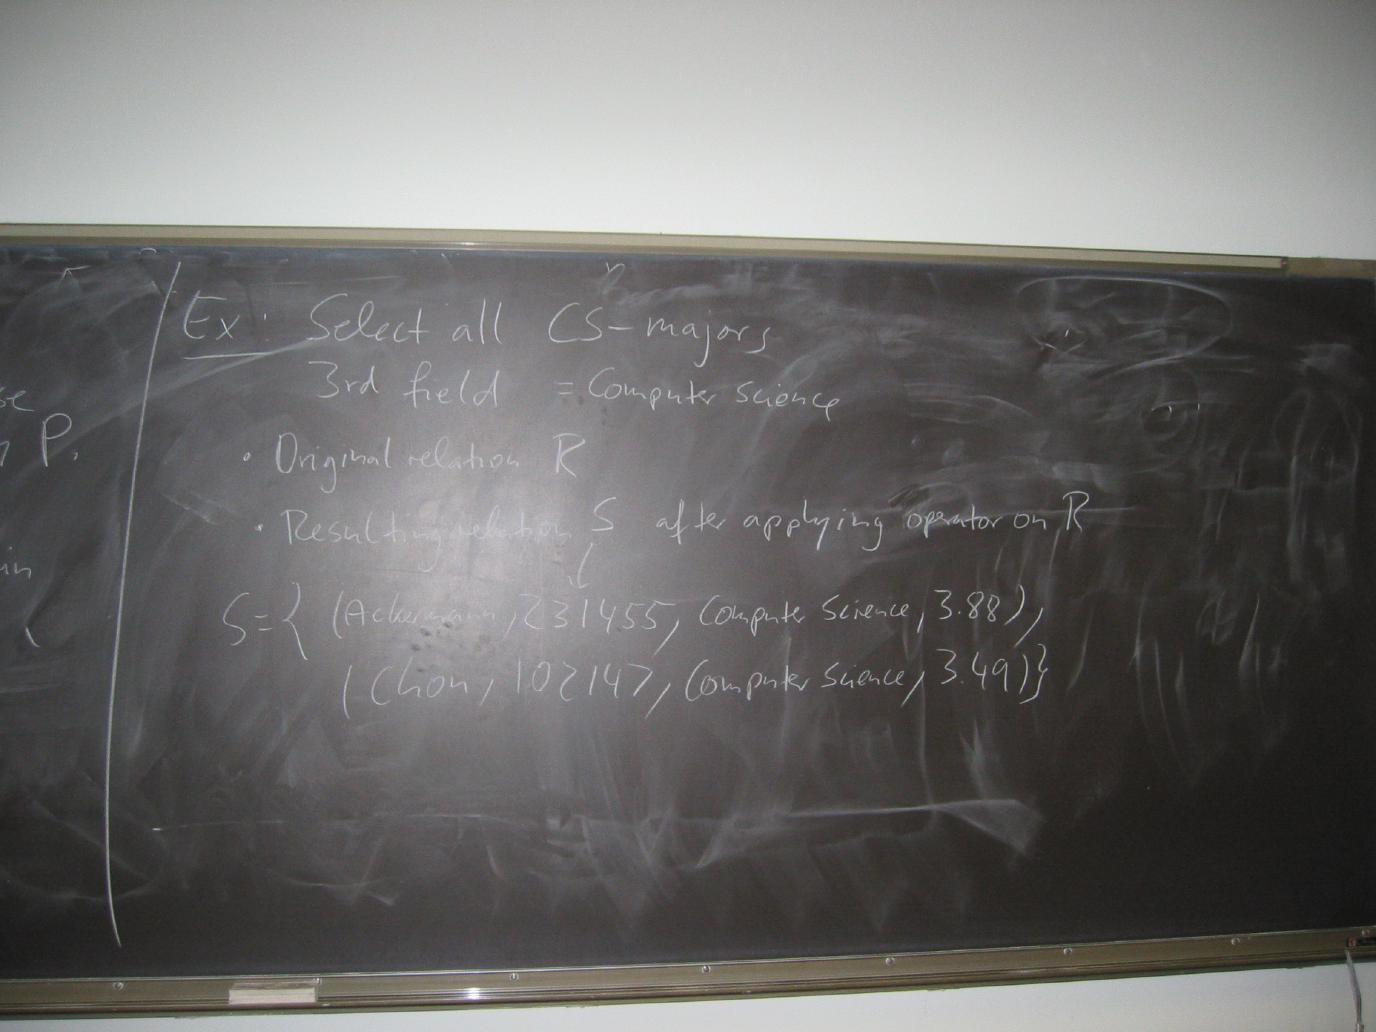 se
P.
in
Ex: Select all CS-majors
3rd field = Computer science
· Original relation R
· Resulting relation S after applying operator on R
S={ (Ackermann, 231455, Computer Science, 3.88),
(Chou, 102147, Computer Science, 3.49)}